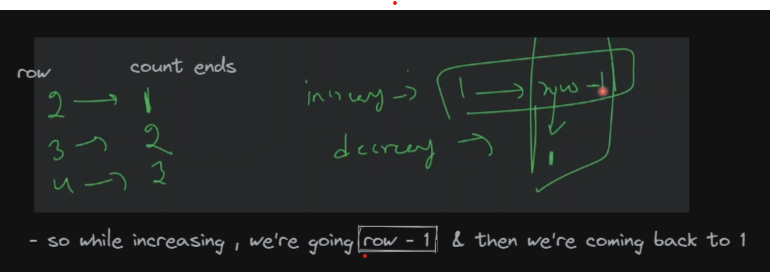 row count ends
2 → 1 increasing → 1 → row - 1
3 → 2 decreasing → 1
4 → 3
- so while increasing, we're going row - 1 & then we're coming back to 1